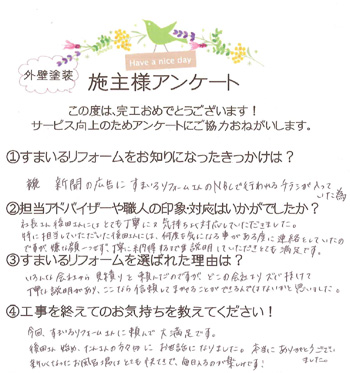 Have a nice day
外壁塗装
施主様アンケート
この度は、完工おめでとうございます！
サービス向上のためアンケートにご協力おねがいします。
①すまいるリフォームをお知りになったきっかけは？
親 新聞の広告にすまいるリフォームさんの
チラシが入って
いた為
②担当アドバイザーや職人の印象・対応はいかがでしたか？
社長さん 様田さんにはとても丁寧に又気持ちよく対応していただきました。
特に担当していただいた様田さんには、何度も気になる事がある度に連絡をしていたの
ですが、嫌な顔一つせず、丁寧に納得するまで説明していただきとても満足です。
③すまいるリフォームを選ばれた理由は？
いろんな会社から見積りを頼んだのですが、どこの会社よりズバ抜けて
丁寧な説明があり、ここなら信頼してまかせることができるんではないかと思いました。
④工事を終えてのお気持ちを教えてください！
今回、すまいるリフォームさんに頼んで大満足です。
様田さん始め、たくさんの方々にお世話になりました。本当にありがとうござい
ました。
新しくなったお風呂場はとても快適で、毎日入るのが楽しみです！